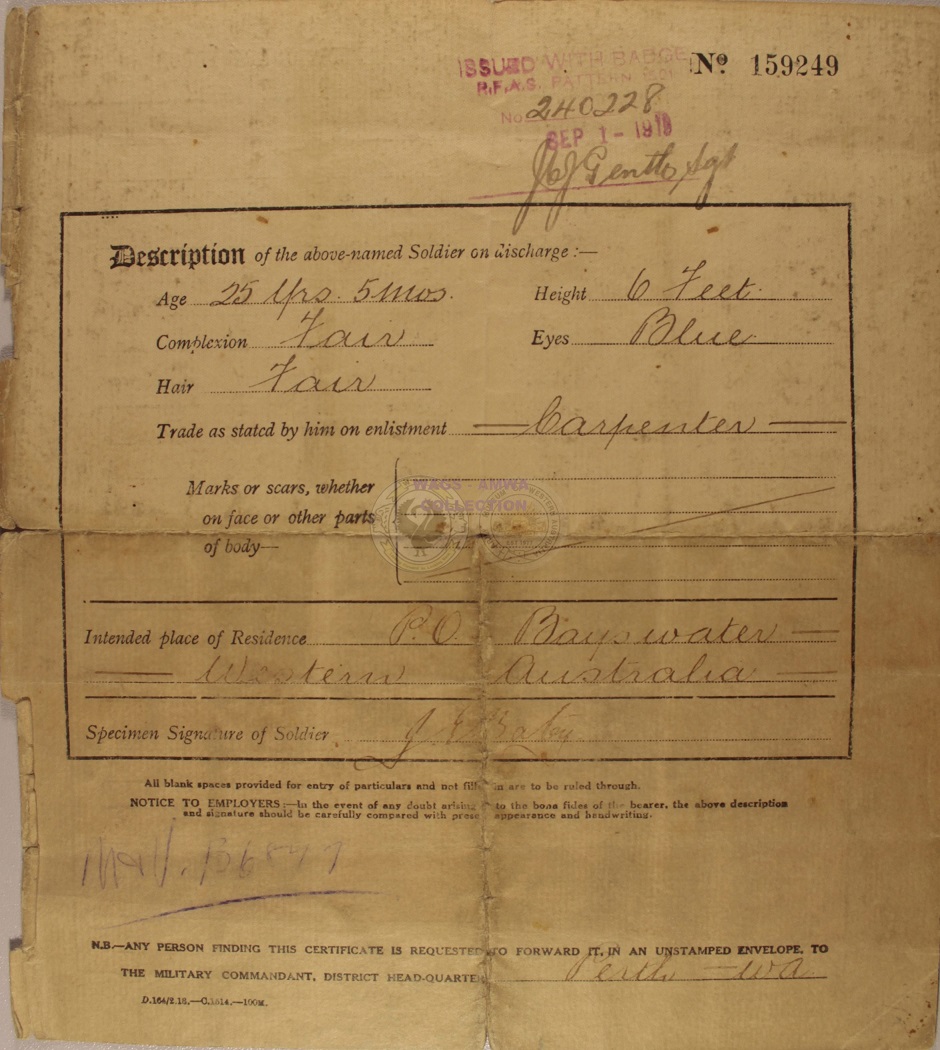 ISSUED WITH BADGE
Nº 159249
R.F.A.S. PATTERN
No. 240228
SEP 1 - 1919
Sgt
Description of the above-named Soldier on discharge :—
Age 25 Yrs. 5 Mos. Height 6 Feet.
Complexion Fair Eyes Blue
Hair Fair
Trade as stated by him on enlistment — Carpenter —
Marks or scars, whether
on face or other parts
of body—
WAGS - AMWA
COLLECTION
Intended place of Residence P.O. Bayswater —
— Western Australia —
Specimen Signature of Soldier
All blank spaces provided for entry of particulars and not filled in are to be ruled through.
NOTICE TO EMPLOYERS:—In the event of any doubt arising to the bona fides of the bearer, the above description
and signature should be carefully compared with appearance and handwriting.
N.B.—ANY PERSON FINDING THIS CERTIFICATE IS REQUESTED TO FORWARD IT, IN AN UNSTAMPED ENVELOPE, TO
THE MILITARY COMMANDANT, DISTRICT HEAD-QUARTERS Perth — WA
D.164/2.18.—C.3514.—100M.